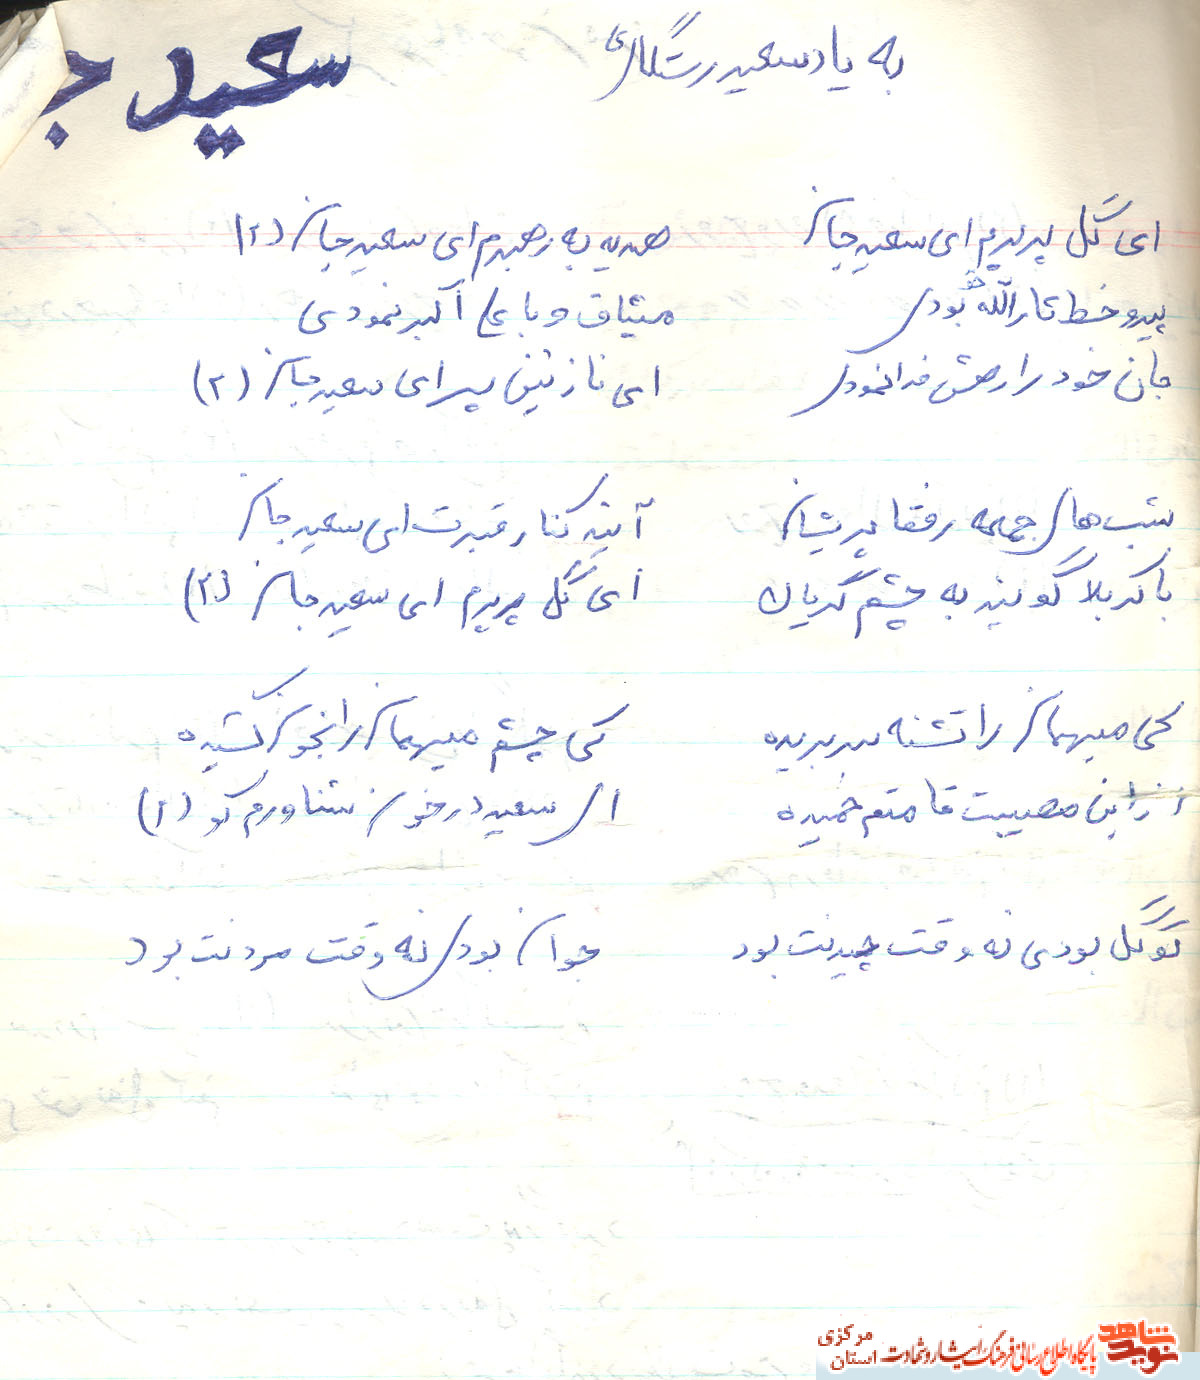 به یاد سعید رستگاری
سعید ج
ای گل پرپرم ای سعید جان هدیه به رهبرم ای سعید جان (۲)
پیرو خط ثارالله بودی میثاق و با علی اکبر نمودی
جان خود را رهش فدا نمودی ای نازنین پسر ای سعید جان (۲)
شب های جمعه رفقا پریشان آیند کنار قبرت ای سعید جان
با کربلا گویند به چشم گریان ای گل پرپرم ای سعید جان (۲)
کی میهمان را تشنه سر بریده کی چشم میهمان را بخون کشیده
از این مصیبت قامتم خمیده ای سعید در خون شناورم کو (۲)
تو گل بودی نه وقت چیدنت بود جوان بودی نه وقت مردنت بود
نوید شاهد
پایگاه اطلاع رسانی فرهنگ ایثار و شهادت
استان مرکزی